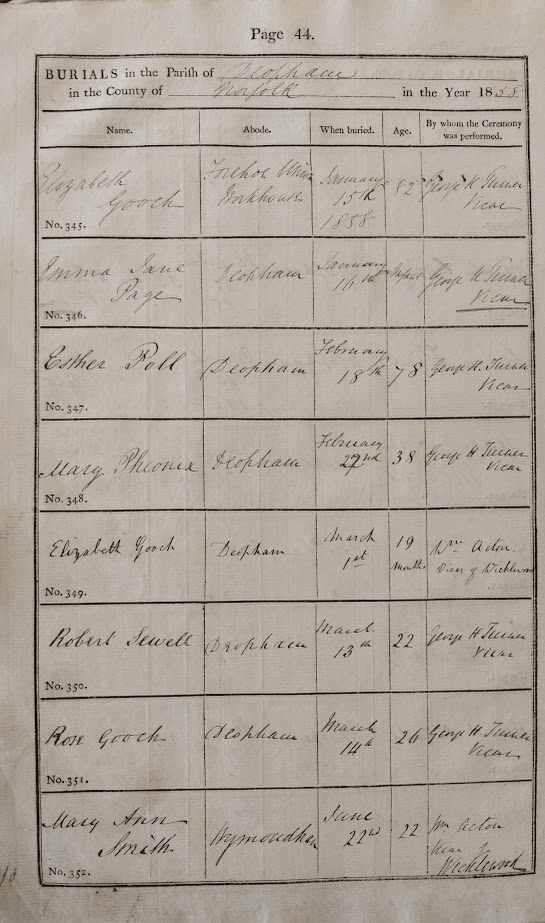 Page 44.
BURIALS in the Parish of Deopham
in the County of Norfolk in the Year 1858.
Name. Abode. When buried. Age. By whom the Ceremony was performed.
Elizabeth
Gooch
No. 345.
Forehoe Union
Workhouse
January
15th
1858
82
George H Turner
Vicar
Emma Jane
Page
No. 346.
Deopham
January
16th
Infant
George H Turner
Vicar
Esther Poll
No. 347.
Deopham
February
18th
78
George H. Turner
Vicar
Mary Pheonix
No. 348.
Deopham
February
22nd
38
George H Turner
Vicar
Elizabeth Gooch
No. 349.
Deopham
March
1st
19
months
Wm Acton.
Vicar of Wicklewood
Robert Sewell
No. 350.
Deopham
March
13th
22
George H Turner
Vicar
Rose Gooch
No. 351.
Deopham
March
14th
26
George H Turner
Vicar
Mary Ann
Smith
No. 352.
Wymondham
June
22nd
22
Wm Acton
Vicar of
Wicklewood